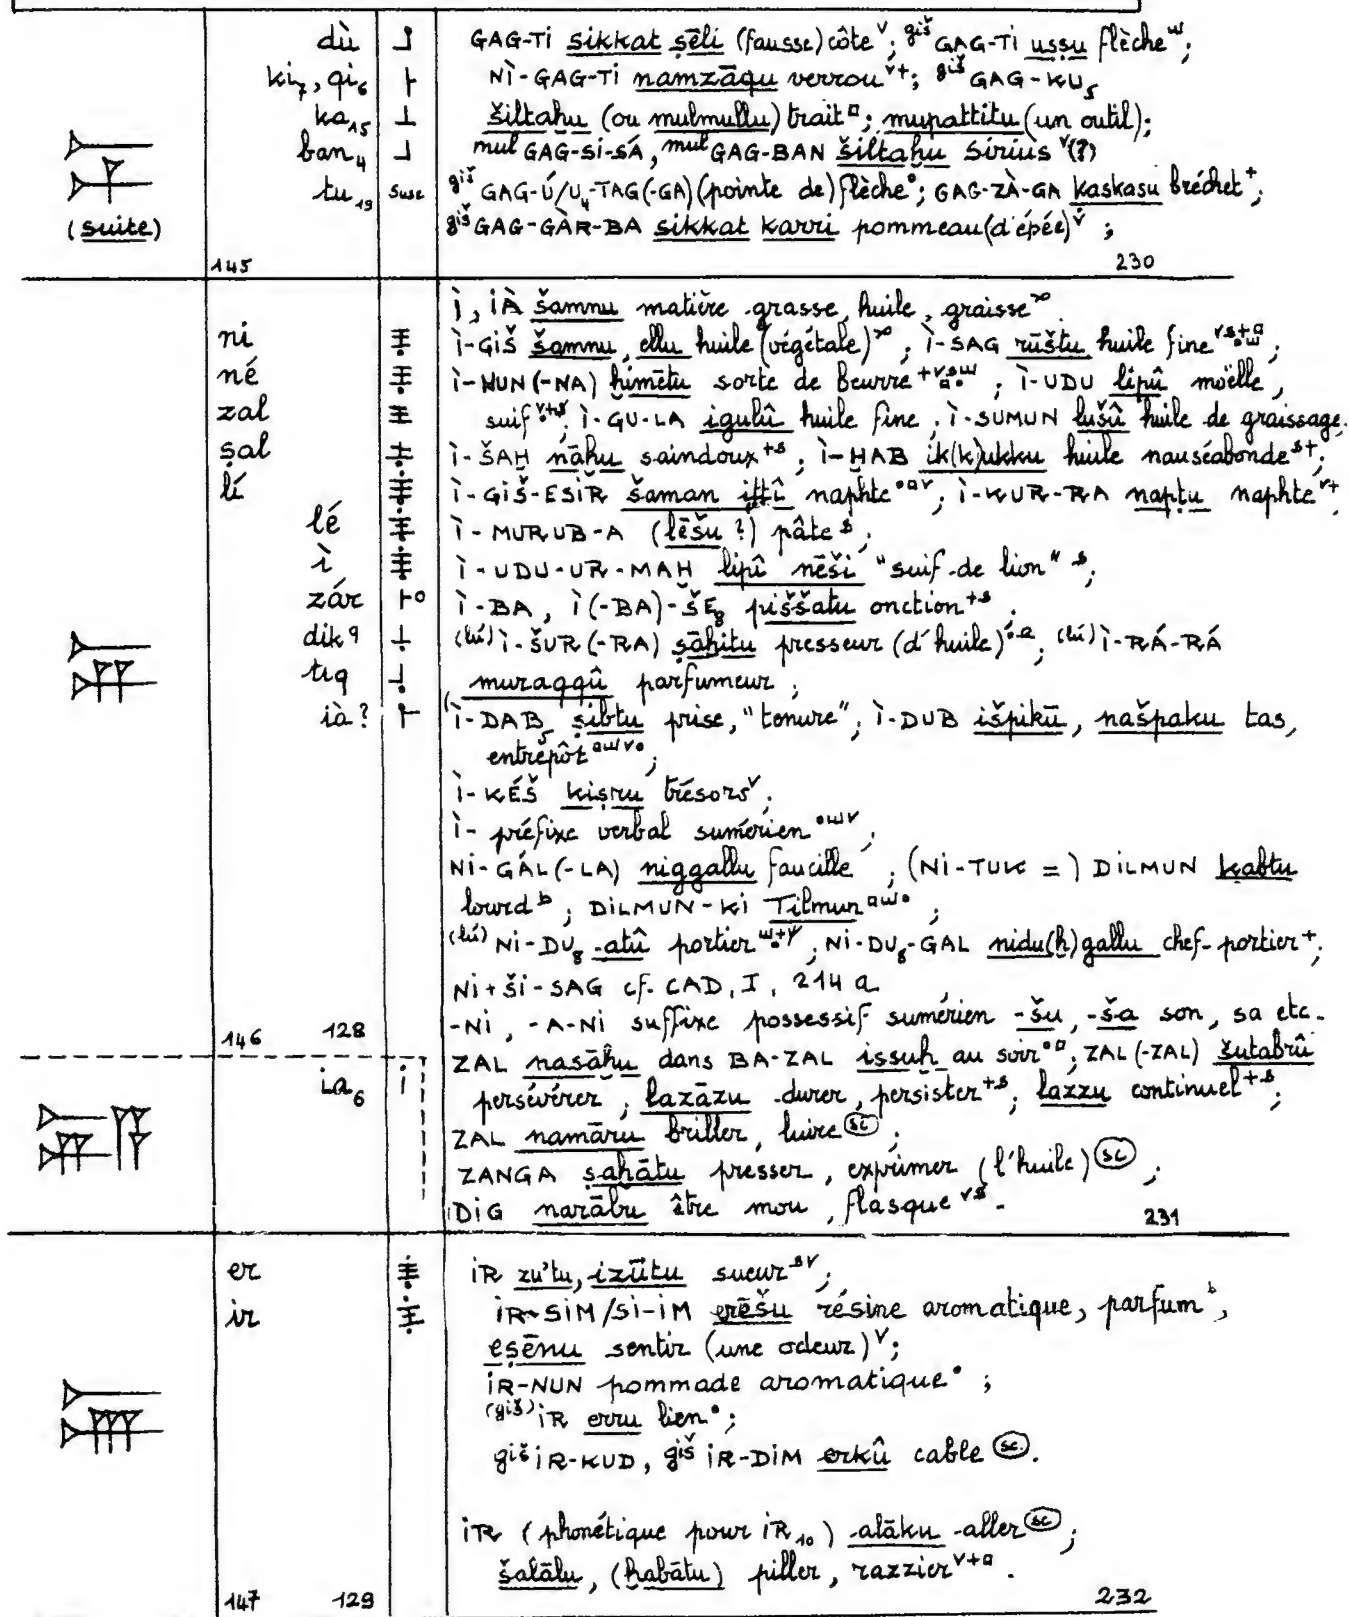 dù GAG-Ti sikkat ṣēli (fausse) côte ; giš GAG-Ti uṣṣu flèche ;
ki₇, qi₆ Nì-GAG-Ti namzāqu verrou ; giš GAG-KU₅
ka₁₅ šiltaḫu (ou mulmullu) trait ; mupattitu (un outil);
ban₄ mul GAG-Si-SÁ, mul GAG-BAN šiltaḫu Sirius (?)
tu₁₃ susc giš GAG-Ú/U₄-TAG(-GA) (pointe de) flèche ; GAG-ZÀ-GA kaskasu bréchet ;
(suite) giš GAG-GÀR-BA sikkat karri pommeau (d'épée) ;
145 230
ì, iÀ šamnu matière grasse, huile, graisse
ni ì-GiŠ šamnu, ellu huile (végétale) ; ì-SAG rūštu huile fine ;
né ì-NUN(-NA) ḫimētu sorte de beurre ; ì-UDU lipû moëlle,
zal suif ; ì-GU-LA igulû huile fine ; ì-SUMUN lušû huile de graissage.
ṣal ì-ŠAḪ nāḫu saindoux ; ì-ḪAB ik(k)ukku huile nauséabonde ;
lí ì-GiŠ-ESiR šaman iṭṭî naphte ; ì-KUR-RA napṭu naphte
lé ì-MURUB-A (lēšu ?) pâte ;
ì ì-UDU-UR-MAḪ lipû nēši "suif de lion" ;
zár ì-BA, ì(-BA)-ŠE₈ piššatu onction ;
dik⁹ (lú) ì-ŠUR(-RA) ṣāḫitu presseur (d'huile) ; (lú) ì-RÁ-RÁ
tiq muraqqû parfumeur ;
ià? ì-DAB₅ ṣibtu prise, "tenure" ; ì-DUB išpikū, našpaku tas,
entrepôt ;
ì-KÉŠ kiṣru trésors ;
ì- préfixe verbal sumérien ;
Ni-GÁL(-LA) niggallu faucille ; (Ni-TUK =) DiLMUN kabtu
lourd ; DiLMUN-Ki Tilmun ;
(lú) Ni-DU₈ atû portier ; Ni-DU₈-GAL nidu(ḫ)gallu chef-portier ;
Ni+ŠI-SAG cf. CAD, I, 214 a
146 128 -Ni, -A-Ni suffixe possessif sumérien -šu, -ša son, sa etc.
ZAL nasāḫu dans BA-ZAL issuḫ au soir ; ZAL(-ZAL) šutabrû
ia₆ i persévérer ; lazāzu durer, persister ; lazzu continuel ;
ZAL namāru briller, luire (sc) ;
ZANGA ṣaḫātu presser, exprimer (l'huile) (sc) ;
DiG narābu être mou, flasque .
231
er iR zu'tu, izūtu sueur ;
ir iR-SiM/Si-iM erēšu résine aromatique, parfum ,
eṣēnu sentir (une odeur) ;
iR-NUN pommade aromatique ;
(giš) iR erru lien ;
giš iR-KUD, giš iR-DiM erkû cable (sc).
iR (phonétique pour iR₁₀) alāku aller (sc) ;
šalālu, (ḫabātu) piller, razzier .
147 129 232